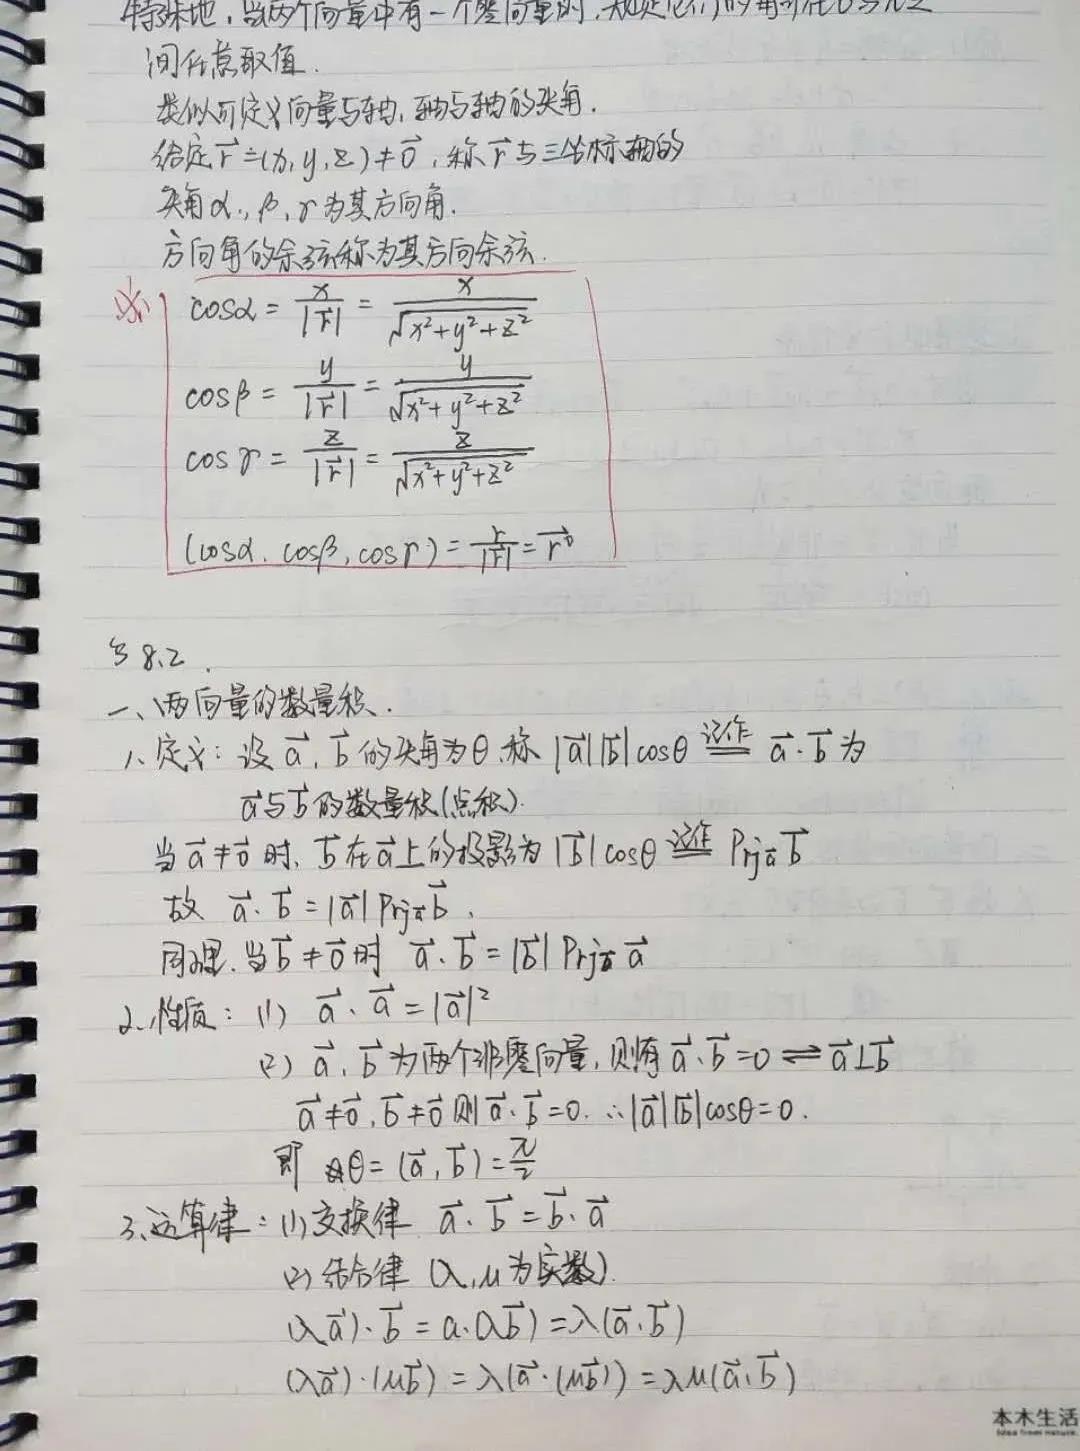 特殊地，当两个向量中有一个零向量时，规定它们的夹角可在0与π之
间任意取值.
类似可定义向量与轴，轴与轴的夹角.
给定r⃗=(x,y,z)≠0⃗，称r⃗与三坐标轴的
夹角α，β，γ为其方向角.
方向角的余弦称为其方向余弦.
※ cosα = x/|r⃗| = x/√(x²+y²+z²)
cosβ = y/|r⃗| = y/√(x²+y²+z²)
cosγ = z/|r⃗| = z/√(x²+y²+z²)
(cosα. cosβ, cosγ) = r/|r⃗| = r⃗⁰
§ 8.2.
一、两向量的数量积.
1、定义：设a⃗，b⃗的夹角为θ，称|a⃗||b⃗|cosθ 记作 a⃗·b⃗为
a⃗与b⃗的数量积(点积).
当a⃗≠0⃗时，b⃗在a⃗上的投影为|b⃗|cosθ 记作 Prj a⃗ b⃗
故 a⃗·b⃗ = |a⃗| Prj a⃗ b⃗，
同理，当b⃗≠0⃗时 a⃗·b⃗ = |b⃗| Prj b⃗ a⃗
2、性质：(1) a⃗·a⃗ = |a⃗|²
(2) a⃗，b⃗为两个非零向量，则有a⃗·b⃗=0 ⇌ a⃗⊥b⃗
a⃗≠0⃗，b⃗≠0⃗则a⃗·b⃗=0. ∴|a⃗||b⃗|cosθ=0.
即 θ=(a⃗,b⃗)=π/2
3、运算律：(1)交换律 a⃗·b⃗=b⃗·a⃗
(2)结合律 (λ,μ为实数).
(λa⃗)·b⃗ = a·(λb⃗) = λ(a⃗·b⃗)
(λa⃗)·(μb⃗) = λ(a⃗·(μb⃗)) = λμ(a⃗·b⃗)
本木生活
Idea from nature.